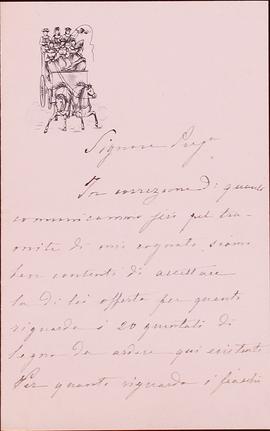 Signore Preg.
In correzione di quanto
comunicammo jeri pel tra-
mite di mio cognato, siamo
ben contenti di accettare
la di lei offerta per quanto
riguarda i 20 quintali di
legna da ardere qui esistente
Per quanto riguarda i fiaschi